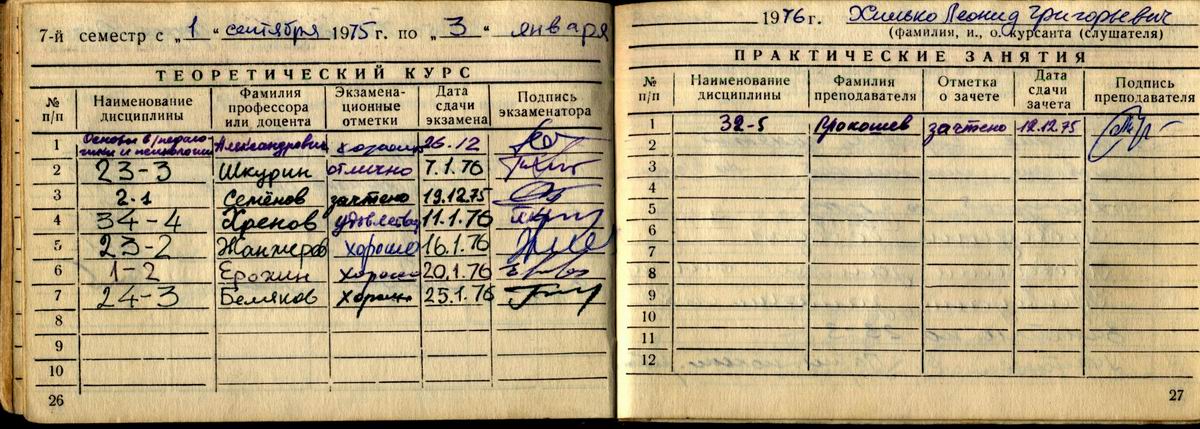 7-й семестр с „1“ сентября 1975 г. по „3“ января
ТЕОРЕТИЧЕСКИЙ КУРС
№ п/п Наименование дисциплины Фамилия профессора или доцента Экзамена-ционные отметки Дата сдачи экзамена Подпись экзаменатора
1 Основы в/педаго-гики и психологии Александрович хорошо 26.12
2 23-3 Шкурин отлично 7.1.76
3 2-1 Семёнов зачтено 19.12.75
4 34-4 Хренов 11.1.76
5 23-2 хорошо 16.1.76
6 1-2 Ерохин хорошо 20.1.76
7 24-3 Беляков хорошо 25.1.76
8
9
10
26
1976 г. Хилько Леонид Григорьевич
(фамилия, и., о. курсанта (слушателя)
ПРАКТИЧЕСКИЕ ЗАНЯТИЯ
№ п/п Наименование дисциплины Фамилия преподавателя Отметка о зачете Дата сдачи зачета Подпись преподавателя
1 32-5 Прокошев зачтено 12.12.75
2
3
4
5
6
7
8
9
10
11
12
27